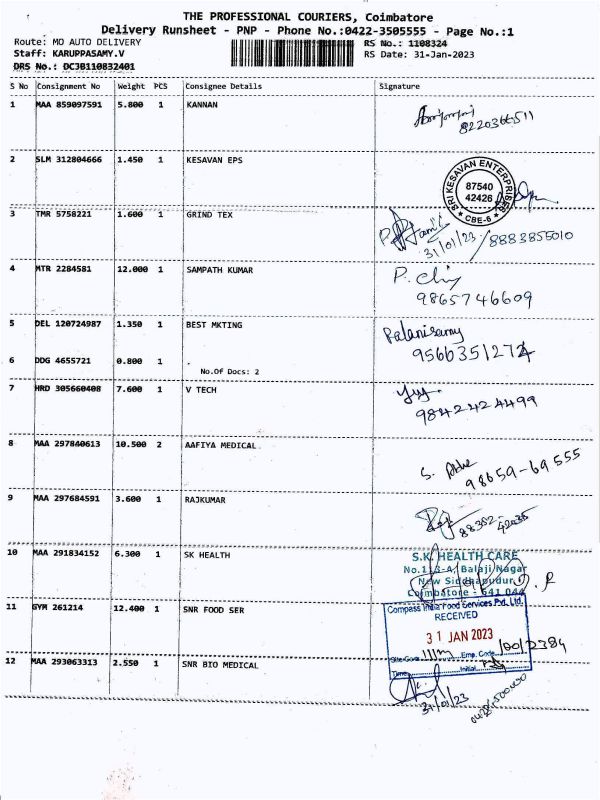 THE PROFESSIONAL COURIERS, Coimbatore
Delivery Runsheet - PNP - Phone No.:0422-3505555 - Page No.:1
Route: MO AUTO DELIVERY RS No.: 1108324
Staff: KARUPPASAMY.V RS Date: 31-Jan-2023
DRS No.: DCJ0110832401
S No Consignment No Weight PCS Consignee Details Signature
1 MAA 859097591 5.800 1 KANNAN
8220366511
2 SLM 312804666 1.450 1 KESAVAN EPS
SRI KESAVAN ENTERPRISES
87540
42426
CBE-6
3 TMR 5758221 1.600 1 GRIND TEX
31/01/23 /8883855010
4 MTR 2284581 12.000 1 SAMPATH KUMAR
9865746609
5 DEL 120724987 1.350 1 BEST MKTING
Palanisamy
9566351272
6 DDG 4655721 0.800 1 .
No.Of Docs: 2
7 HRD 305660408 7.600 1 V TECH
9842424499
8 MAA 297840613 10.500 2 AAFIYA MEDICAL
98659-69555
9 MAA 297684591 3.600 1 RAJKUMAR
88382-42035
10 MAA 291834152 6.300 1 SK HEALTH
S.K. HEALTH CARE
Balaji Nagar
New Siddhapudur
Coimbatore - 641 044
11 GYM 261214 12.400 1 SNR FOOD SER
Compass India Food Services Pvt. Ltd.
RECEIVED
31 JAN 2023
Site Code Emp. Code
Time Initial
12 MAA 293063313 2.550 1 SNR BIO MEDICAL
31/01/23